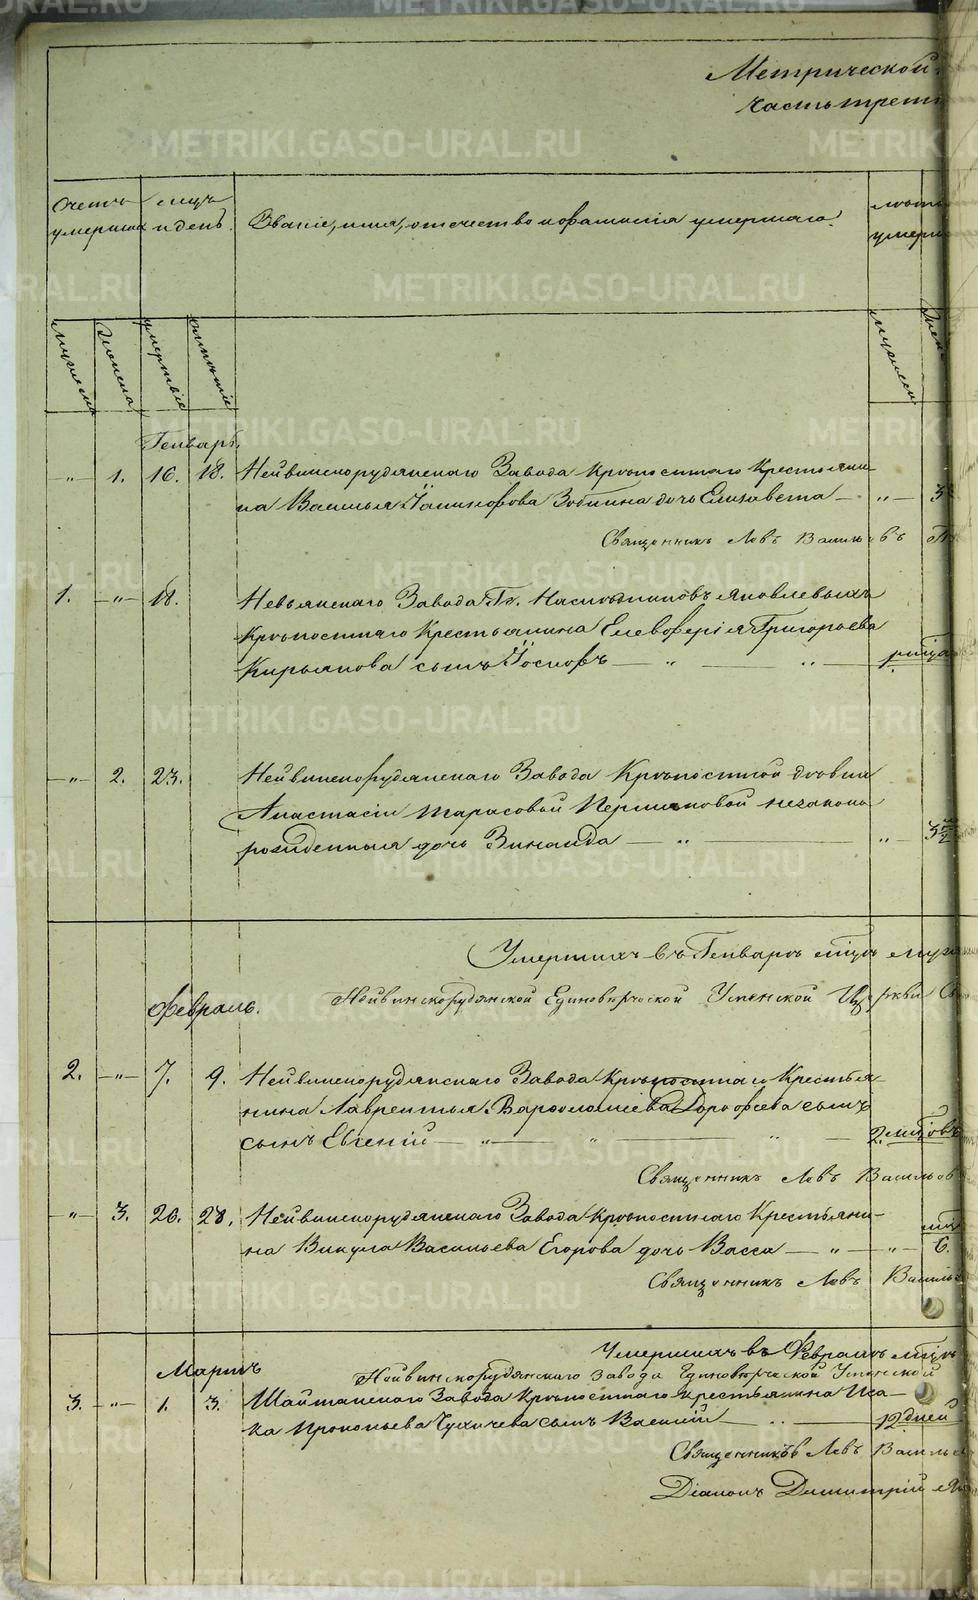 Метрической
часть трет
Счетъ умершихъ
мцъ и день.
Званіе, имя, отечество и фамилія умершаго.
лѣта умерш
мужеска
женска
смертіе
погребеніе
мужеска
женска
Генварь.
„ 1. 16. 18. Нейвинскорудянскаго Завода крѣпостнаго крестьяни-
на Василья Никифорова Зобнина дочь Елизавета — „ — 3
Священникъ Левъ Васильевъ
1. — „ — 18. Невьянскаго Завода Гг. Наслѣдниковъ Яковлевыхъ
крѣпостнаго крестьянина Елевферія Григорьева
Кирьянова сынъ Іосифъ — „ — „
— „ — 2. 23. Нейвинскорудянскаго Завода крѣпостной дѣвки
Анастасіи Тарасовой Перминовой незаконо
рожденная дочь Зинаида — „ — „ — 3 1/2
Умершихъ въ Генварѣ мцѣ муж
Нейвинскорудянской Единовѣрческой Успенской Церкви Св
Февраль.
2. — „ — 7. 9. Нейвинскорудянскаго Завода крѣпостнаго крестья-
нина Лаврентья Варфоломіева Дорофеева сынъ
сынъ Евгеній — „ — „ — „ — 2 мцовъ
Священникъ Левъ Васильев
— „ — 3. 26. 28. Нейвинскорудянскаго Завода крѣпостнаго крестьяни-
на Викула Васильева Егорова дочь Васса — „ — „ — 6.
Священникъ Левъ Василь
Умершихъ въ Февралѣ мцѣ
Мартъ
Нейвинскорудянскаго завода Единовѣрческой Успенской
3. — „ — 1. 3. Шайтанскаго Завода крѣпостнаго крестьянина Иса-
ка Прокопьева Чухичева сынъ Василій — „ — 12 дней
Священникъ Левъ Василье
Діаконъ Димитрій Я
METRIKI.GASO-URAL.RU